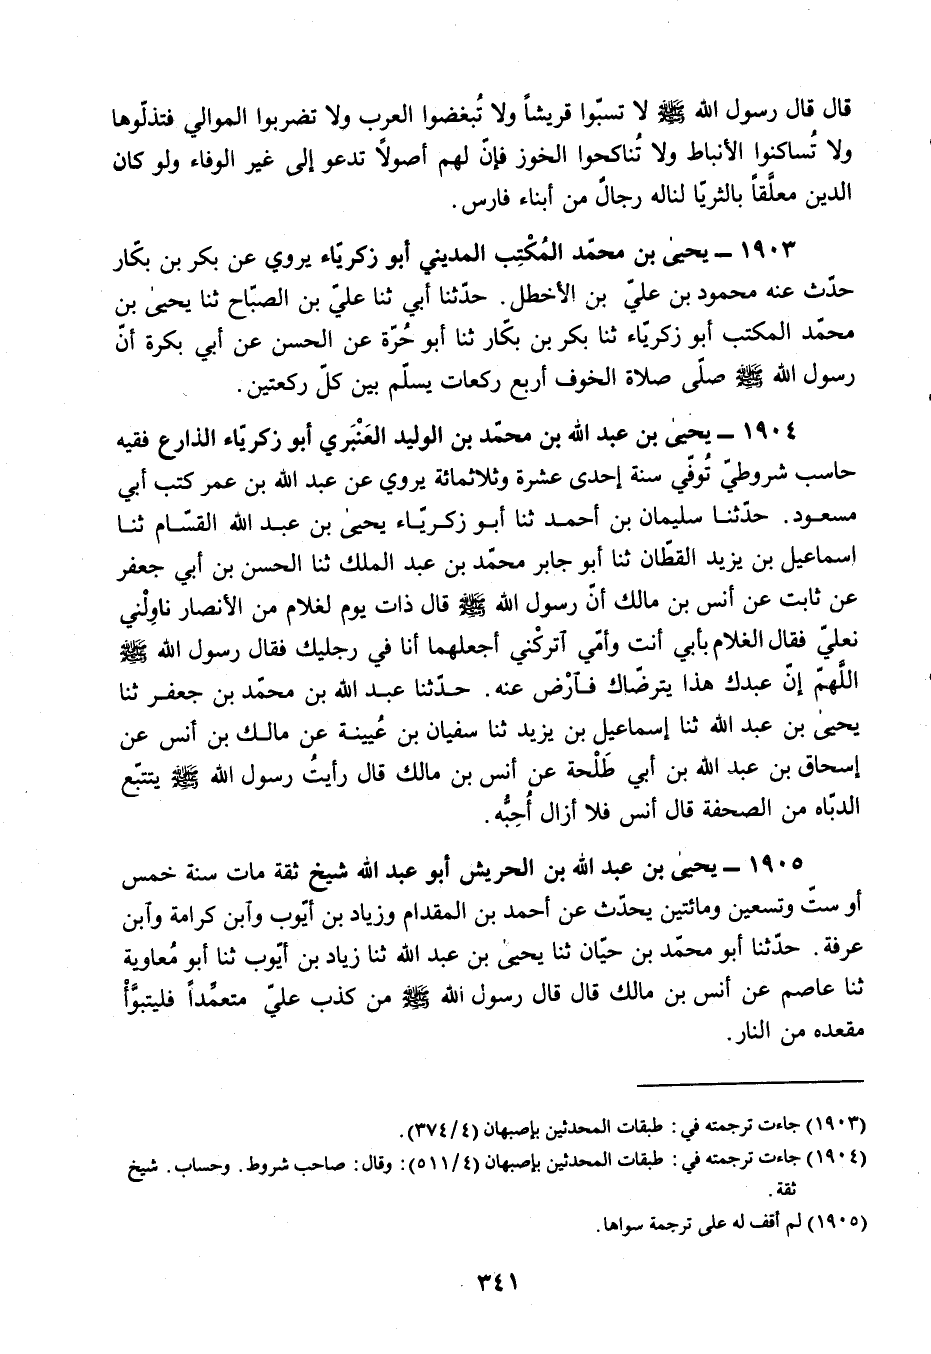 قال قال رسول الله ﷺ لا تسبّوا قريشاً ولا تُبغضوا العرب ولا تضربوا الموالي فتذلّوها
ولا تُساكنوا الأنباط ولا تُناكحوا الخوز فإنّ لهم أصولاً تدعو إلى غير الوفاء ولو كان
الدين معلَّقاً بالثريّا لناله رجالٌ من أبناء فارس.
١٩٠٣ ــ يحيىٰ بن محمّد المُكْتِب المديني أبو زكريّاء يروي عن بكر بن بكّار
حدّث عنه محمود بن عليّ بن الأخطل. حدّثنا أبي ثنا عليّ بن الصبّاح ثنا يحيىٰ بن
محمّد المكتب أبو زكريّاء ثنا بكر بن بكّار ثنا أبو حُرّة عن الحسن عن أبي بكرة أنّ
رسول الله ﷺ صلّى صلاة الخوف أربع ركعات يسلّم بين كلّ ركعتين.
١٩٠٤ ــ يحيىٰ بن عبد الله بن محمّد بن الوليد العَنْبَري أبو زكريّاء الذارع فقيه
حاسب شروطيّ تُوفّي سنة إحدى عشرة وثلاثمائة يروي عن عبد الله بن عمر كتب أبي
مسعود. حدّثنا سليمان بن أحمد ثنا أبو زكريّاء يحيىٰ بن عبد الله القسّام ثنا
اسماعيل بن يزيد القطّان ثنا أبو جابر محمّد بن عبد الملك ثنا الحسن بن أبي جعفر
عن ثابت عن أنس بن مالك أنّ رسول الله ﷺ قال ذات يوم لغلام من الأنصار ناوِلْني
نعليّ فقال الغلام بأبي أنت وأمّي آتركْني أجعلهما أنا في رجليك فقال رسول الله ﷺ
اللَّهمّ إنّ عبدك هذا يترضّاك فآرْض عنه. حدّثنا عبد الله بن محمّد بن جعفر ثنا
يحيىٰ بن عبد الله ثنا إسماعيل بن يزيد ثنا سفيان بن عُيينة عن مالك بن أنس عن
إسحاق بن عبد الله بن أبي طَلْحة عن أنس بن مالك قال رأيتُ رسول الله ﷺ يتتبّع
الدبّاه من الصحفة قال أنس فلا أزال أُحِبُّه.
١٩٠٥ ــ يحيىٰ بن عبد الله بن الحريش أبو عبد الله شيخ ثقة مات سنة خمس
أو ستّ وتسعين ومائتين يحدّث عن أحمد بن المقدام وزياد بن أيّوب وآبن كرامة وآبن
عرفة. حدّثنا أبو محمّد بن حيّان ثنا يحيىٰ بن عبد الله ثنا زياد بن أيّوب ثنا أبو مُعاوية
ثنا عاصم عن أنس بن مالك قال قال رسول الله ﷺ من كذب عليّ متعمِّداً فليتبوَّأْ
مقعده من النار.
(١٩٠٣) جاءت ترجمته في: طبقات المحدثين بإصبهان (٣٧٤/٤).
(١٩٠٤) جاءت ترجمته في: طبقات المحدثين بإصبهان (٥١١/٤): وقال: صاحب شروط. وحساب. شيخ
ثقة.
(١٩٠٥) لم أقف له على ترجمة سواها.
٣٤١